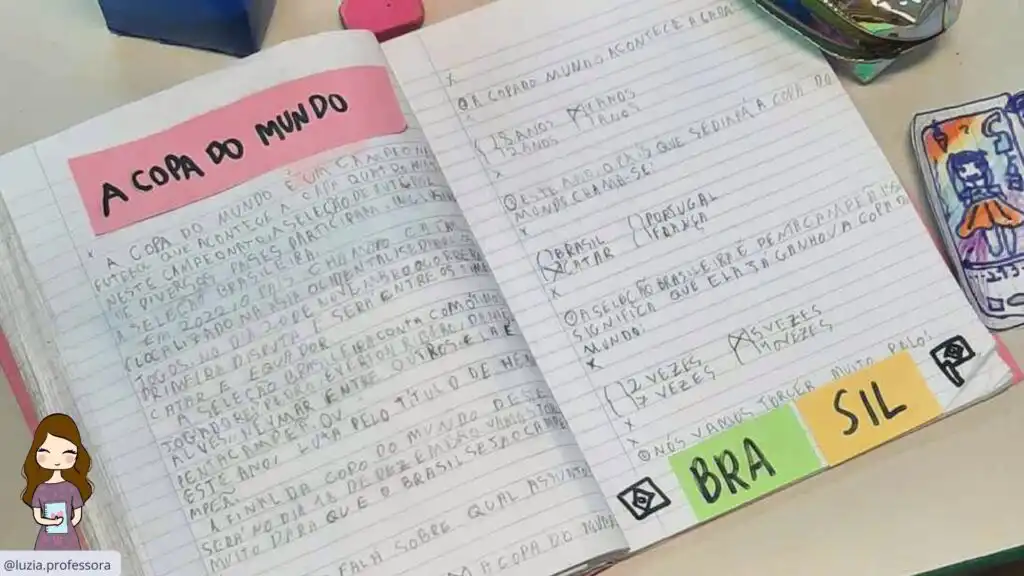 A COPA DO MUNDO
A COPA DO MUNDO É UM CAMPEONA
FUTEBOL QUE ACONTECE A CADA QUATRO
NESTE CAMPEONATO, A SELEÇÃO DE FUTEBOL
DE DIVERSOS PAÍSES PARTICIPAM
A SELEÇÃO BRASILEIRA.
EM 2022 O PAÍS CHAMADO CATAR
(LOCALIZADO NA ÁSIA OCIDENTAL) SEDIARÁ
JOGOS. NO DIA 20 DE NOVEMBRO OCORRERÁ
PRIMEIRA DISPUTA E SERÁ ENTRE OS TIMES
CATAR E EQUADOR
A SELEÇÃO BRASILEIRA CONTA COM ÓTIMO
JOGADORES
ALVES, NEYMAR ENTRE OUTROS E
PENTACAMPEÃ OU
ESTE ANO, LUTA PELO TÍTULO DE HEXA
MPEÃ
A FINAL DA COPA DO MUNDO DESE
SERÁ NO DIA 18 DE DEZEMBRO. VAMOS TOR
MUITO PARA QUE O BRASIL SEJA O CAMP
FALA SOBRE QUAL ASSUNTO
A COPA DO MUND
A COPA DO MUNDO ACONTECE A CADA
( ) 5 ANOS (X) 4 ANOS
( ) 2 ANOS ANOS
ESTE ANO, O PAÍS QUE SEDIARÁ A COPA DO
MUNDO CHAMA-SE:
( ) BRASIL ( ) PORTUGAL
(X) CATAR ( ) FRANÇA
A SELEÇÃO BRASILEIRA É PENTACAMPEÃ ISSO
SIGNIFICA QUE ELA JÁ GANHOU A COPA DO
MUNDO:
( ) 2 VEZES (X) 5 VEZES
( ) 7 VEZES VEZES
NÓS VAMOS TORCER MUITO PALO:
BRA
SIL
@luzia.professora